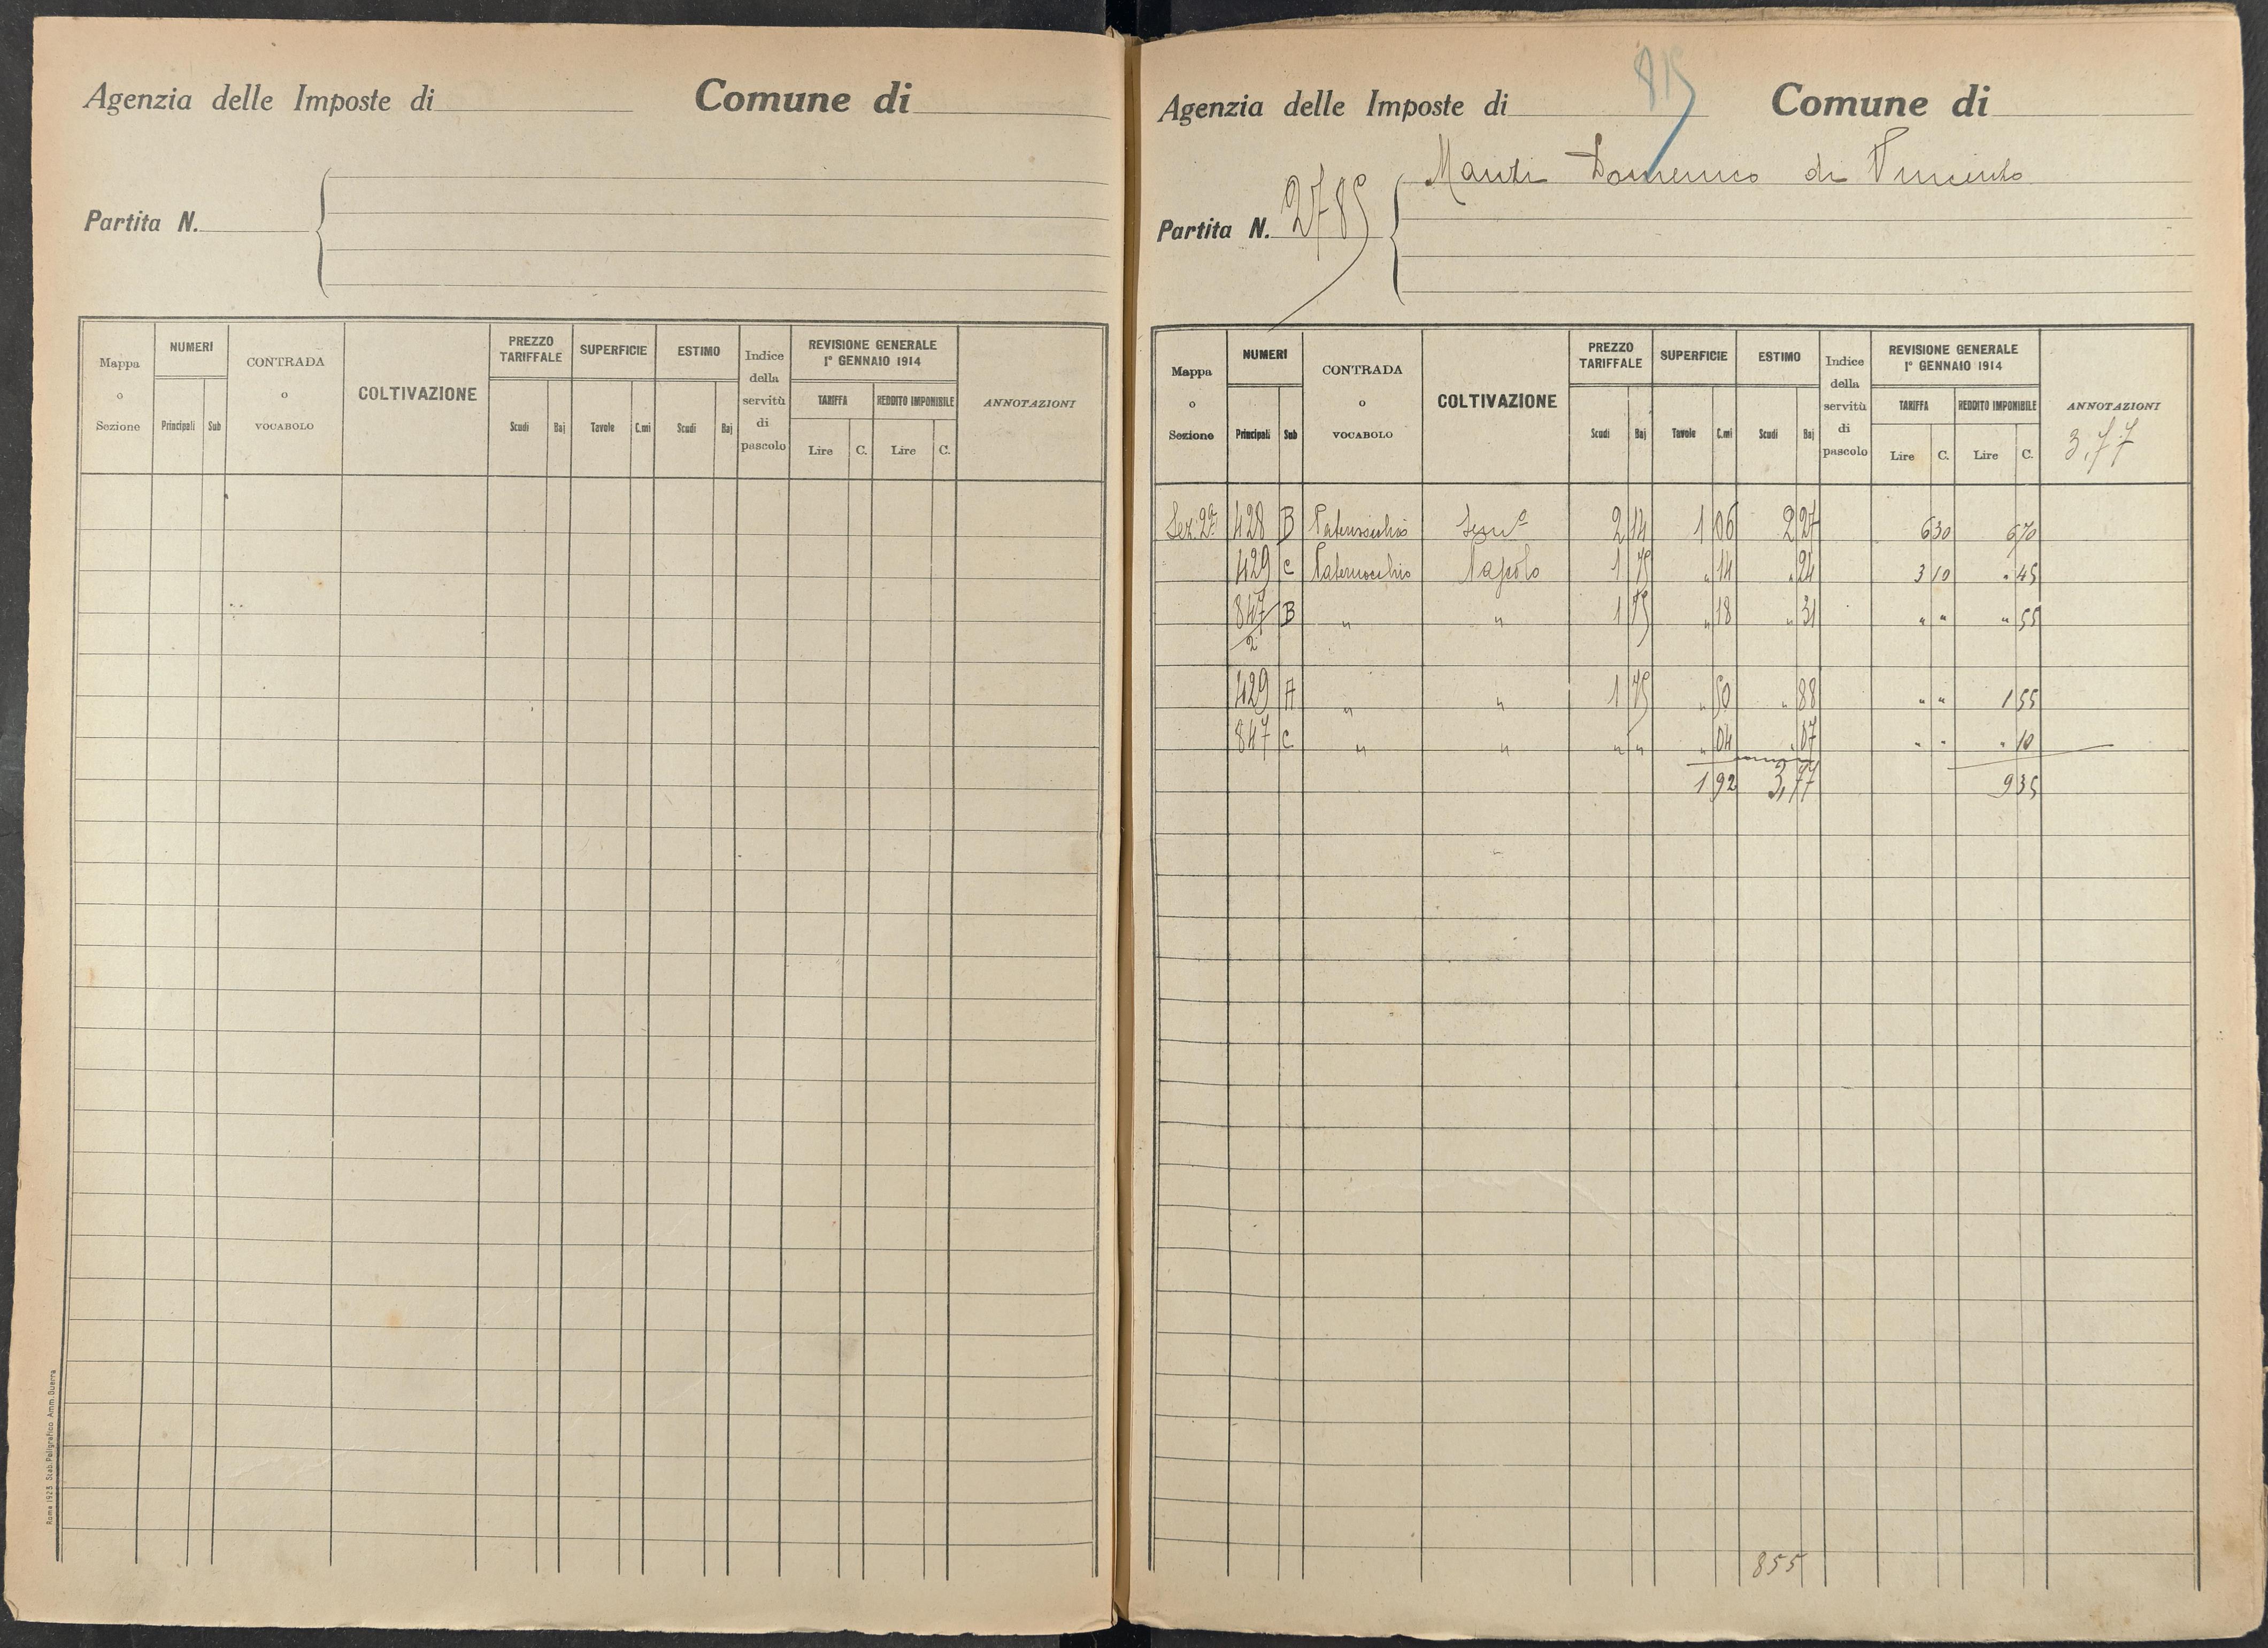 Agenzia delle Imposte di
Comune di
Partita N.
Mappa o Sezione
NUMERI
Principali
Sub
CONTRADA o VOCABOLO
COLTIVAZIONE
PREZZO TARIFFALE
Scudi
Baj
SUPERFICIE
Tavole
C.mi
ESTIMO
Scudi
Baj
Indice della servitù di pascolo
REVISIONE GENERALE
1° GENNAIO 1914
TARIFFA
REDDITO IMPONIBILE
Lire
C.
Lire
C.
ANNOTAZIONI
Roma 1923 Stab. Poligrafico Amm. Guerra
815
Agenzia delle Imposte di
Comune di
Domenico di Vincenzo
Partita N. 2785
Mappa o Sezione
NUMERI
Principali
Sub
CONTRADA o VOCABOLO
COLTIVAZIONE
PREZZO TARIFFALE
Scudi
Baj
SUPERFICIE
Tavole
C.mi
ESTIMO
Scudi
Baj
Indice della servitù di pascolo
REVISIONE GENERALE
1° GENNAIO 1914
TARIFFA
REDDITO IMPONIBILE
Lire
C.
Lire
C.
ANNOTAZIONI
3,77
Sez. 2ª 428 B 2 14 1 06 2 27 6 30 6 70
429 C Pascolo 1 75 " 14 " 24 3 10 " 45
847/2 B " " 1 75 " 18 " 31 " " " 55
429 A " " 1 75 " 50 " 88 " " 1 55
847 C " " " " " 04 " 07 " " " 10
1 92 3,77 9 35
855